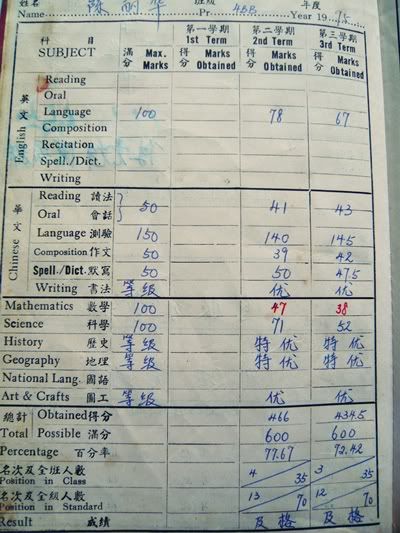 姓名 Name 陳耐華 班級 Pr. 4SB 年度 Year 1975
科目 SUBJECT 滿分 Max. Marks 第一學期 1st Term 得分 Marks Obtained 第二學期 2nd Term 得分 Marks Obtained 第三學期 3rd Term 得分 Marks Obtained
英文 English
Reading
Oral
Language 100 78 67
Composition
Recitation
Spell./Dict.
Writing
華文 Chinese
Reading 讀法
Oral 會話 50 41 43
Language 測驗 150 140 145
Composition 作文 50 39 42
Spell./Dict. 默寫 50 50 47.5
Writing 書法 等級 优 优
Mathematics 數學 100 47 38
Science 科學 100 71 52
History 歷史 等級 特优 特优
Geography 地理 等級 特优 特优
National Lang. 國語
Art & Crafts 圖工 等級 优 优
總計 Obtained 得分 466 434.5
Total Possible 滿分 600 600
Percentage 百分率 77.67 72.42
名次及全班人數 Position in Class 4/35 3/35
名次及全級人數 Position in Standard 13/70 12/70
Result 成績 及格 及格